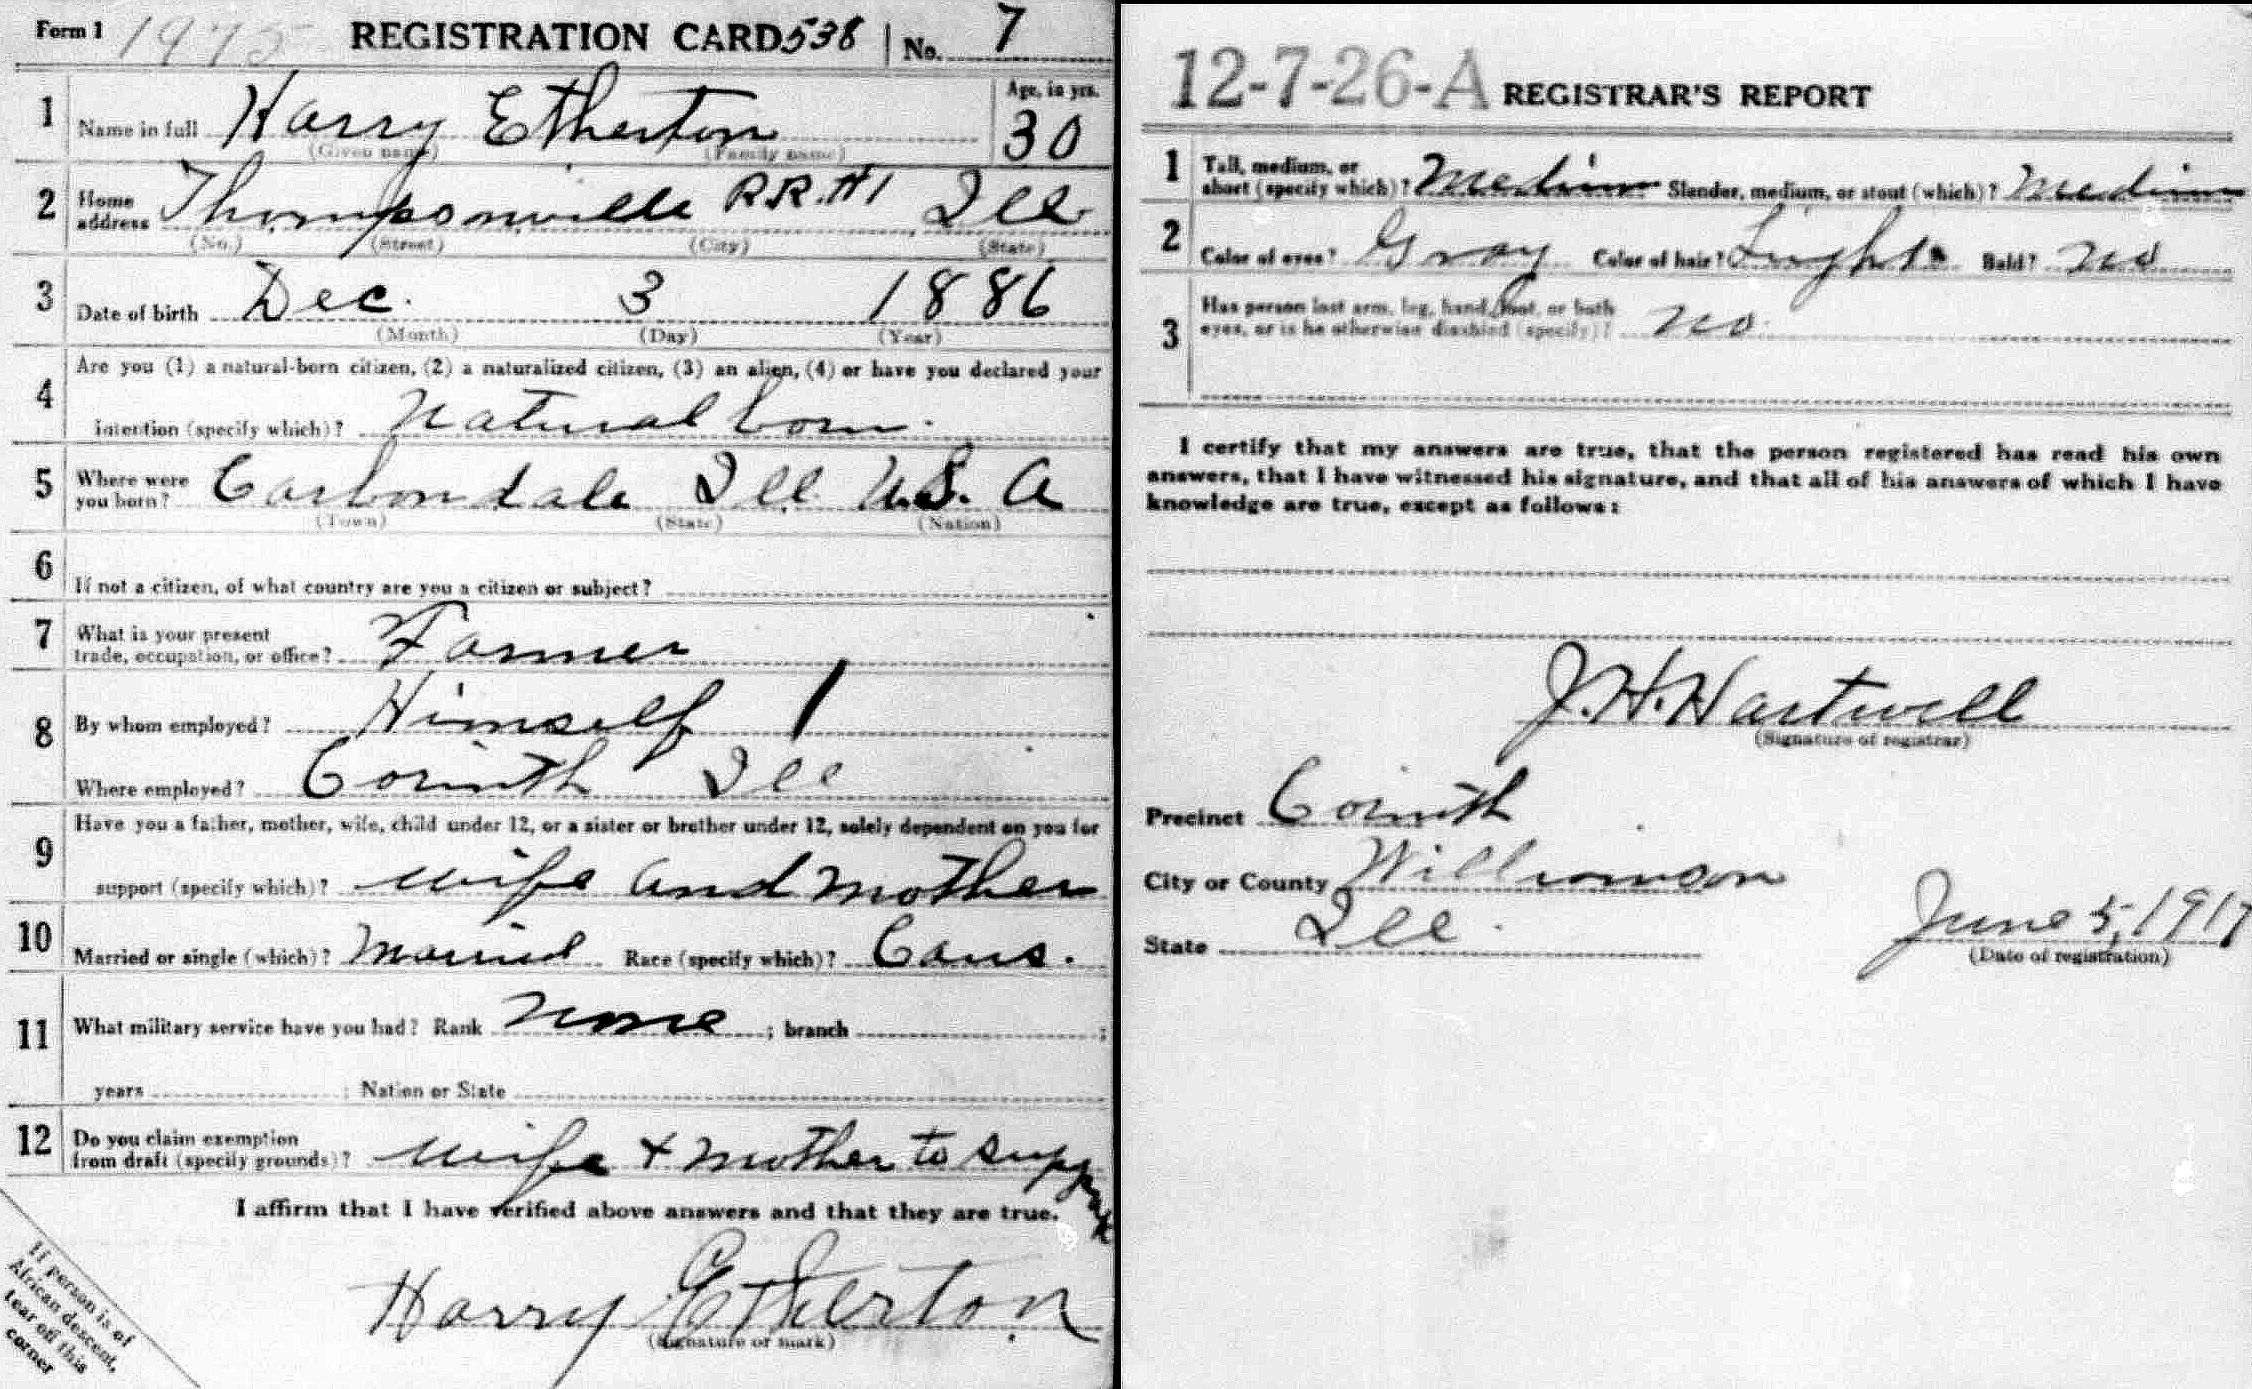 Form 1 1975 REGISTRATION CARD 538 No. 7
1 Name in full Harry Etherton Age, in yrs. 30
(Given name) (Family name)
2 Home address Thompsonville R.R.#1 Ill
(No.) (Street) (City) (State)
3 Date of birth Dec. 3 1886
(Month) (Day) (Year)
4 Are you (1) a natural-born citizen, (2) a naturalized citizen, (3) an alien, (4) or have you declared your
intention (specify which)? Natural born.
5 Where were you born? Carbondale Ill U.S. A
(Town) (State) (Nation)
6 If not a citizen, of what country are you a citizen or subject?
7 What is your present trade, occupation, or office? Farmer
8 By whom employed? Himself
Where employed? Corinth Ill
9 Have you a father, mother, wife, child under 12, or a sister or brother under 12, solely dependent on you for
support (specify which)? wife and mother
10 Married or single (which)? Married Race (specify which)? Caus.
11 What military service have you had? Rank None ; branch ;
years ; Nation or State
12 Do you claim exemption from draft (specify grounds)? wife + mother to support
I affirm that I have verified above answers and that they are true.
Harry Etherton
(Signature or mark)
If person is of
African descent,
tear off this
corner
12-7-26-A REGISTRAR'S REPORT
1 Tall, medium, or short (specify which)? Medium Slender, medium, or stout (which)? Medium
2 Color of eyes? Gray Color of hair? Light Bald? No
3 Has person lost arm, leg, hand, foot, or both
eyes, or is he otherwise disabled (specify)? No.
I certify that my answers are true, that the person registered has read his own
answers, that I have witnessed his signature, and that all of his answers of which I have
knowledge are true, except as follows:
J.H. Hartwell
(Signature of registrar)
Precinct Corinth
City or County Williamson
State Ill. June 5, 1917
(Date of registration)